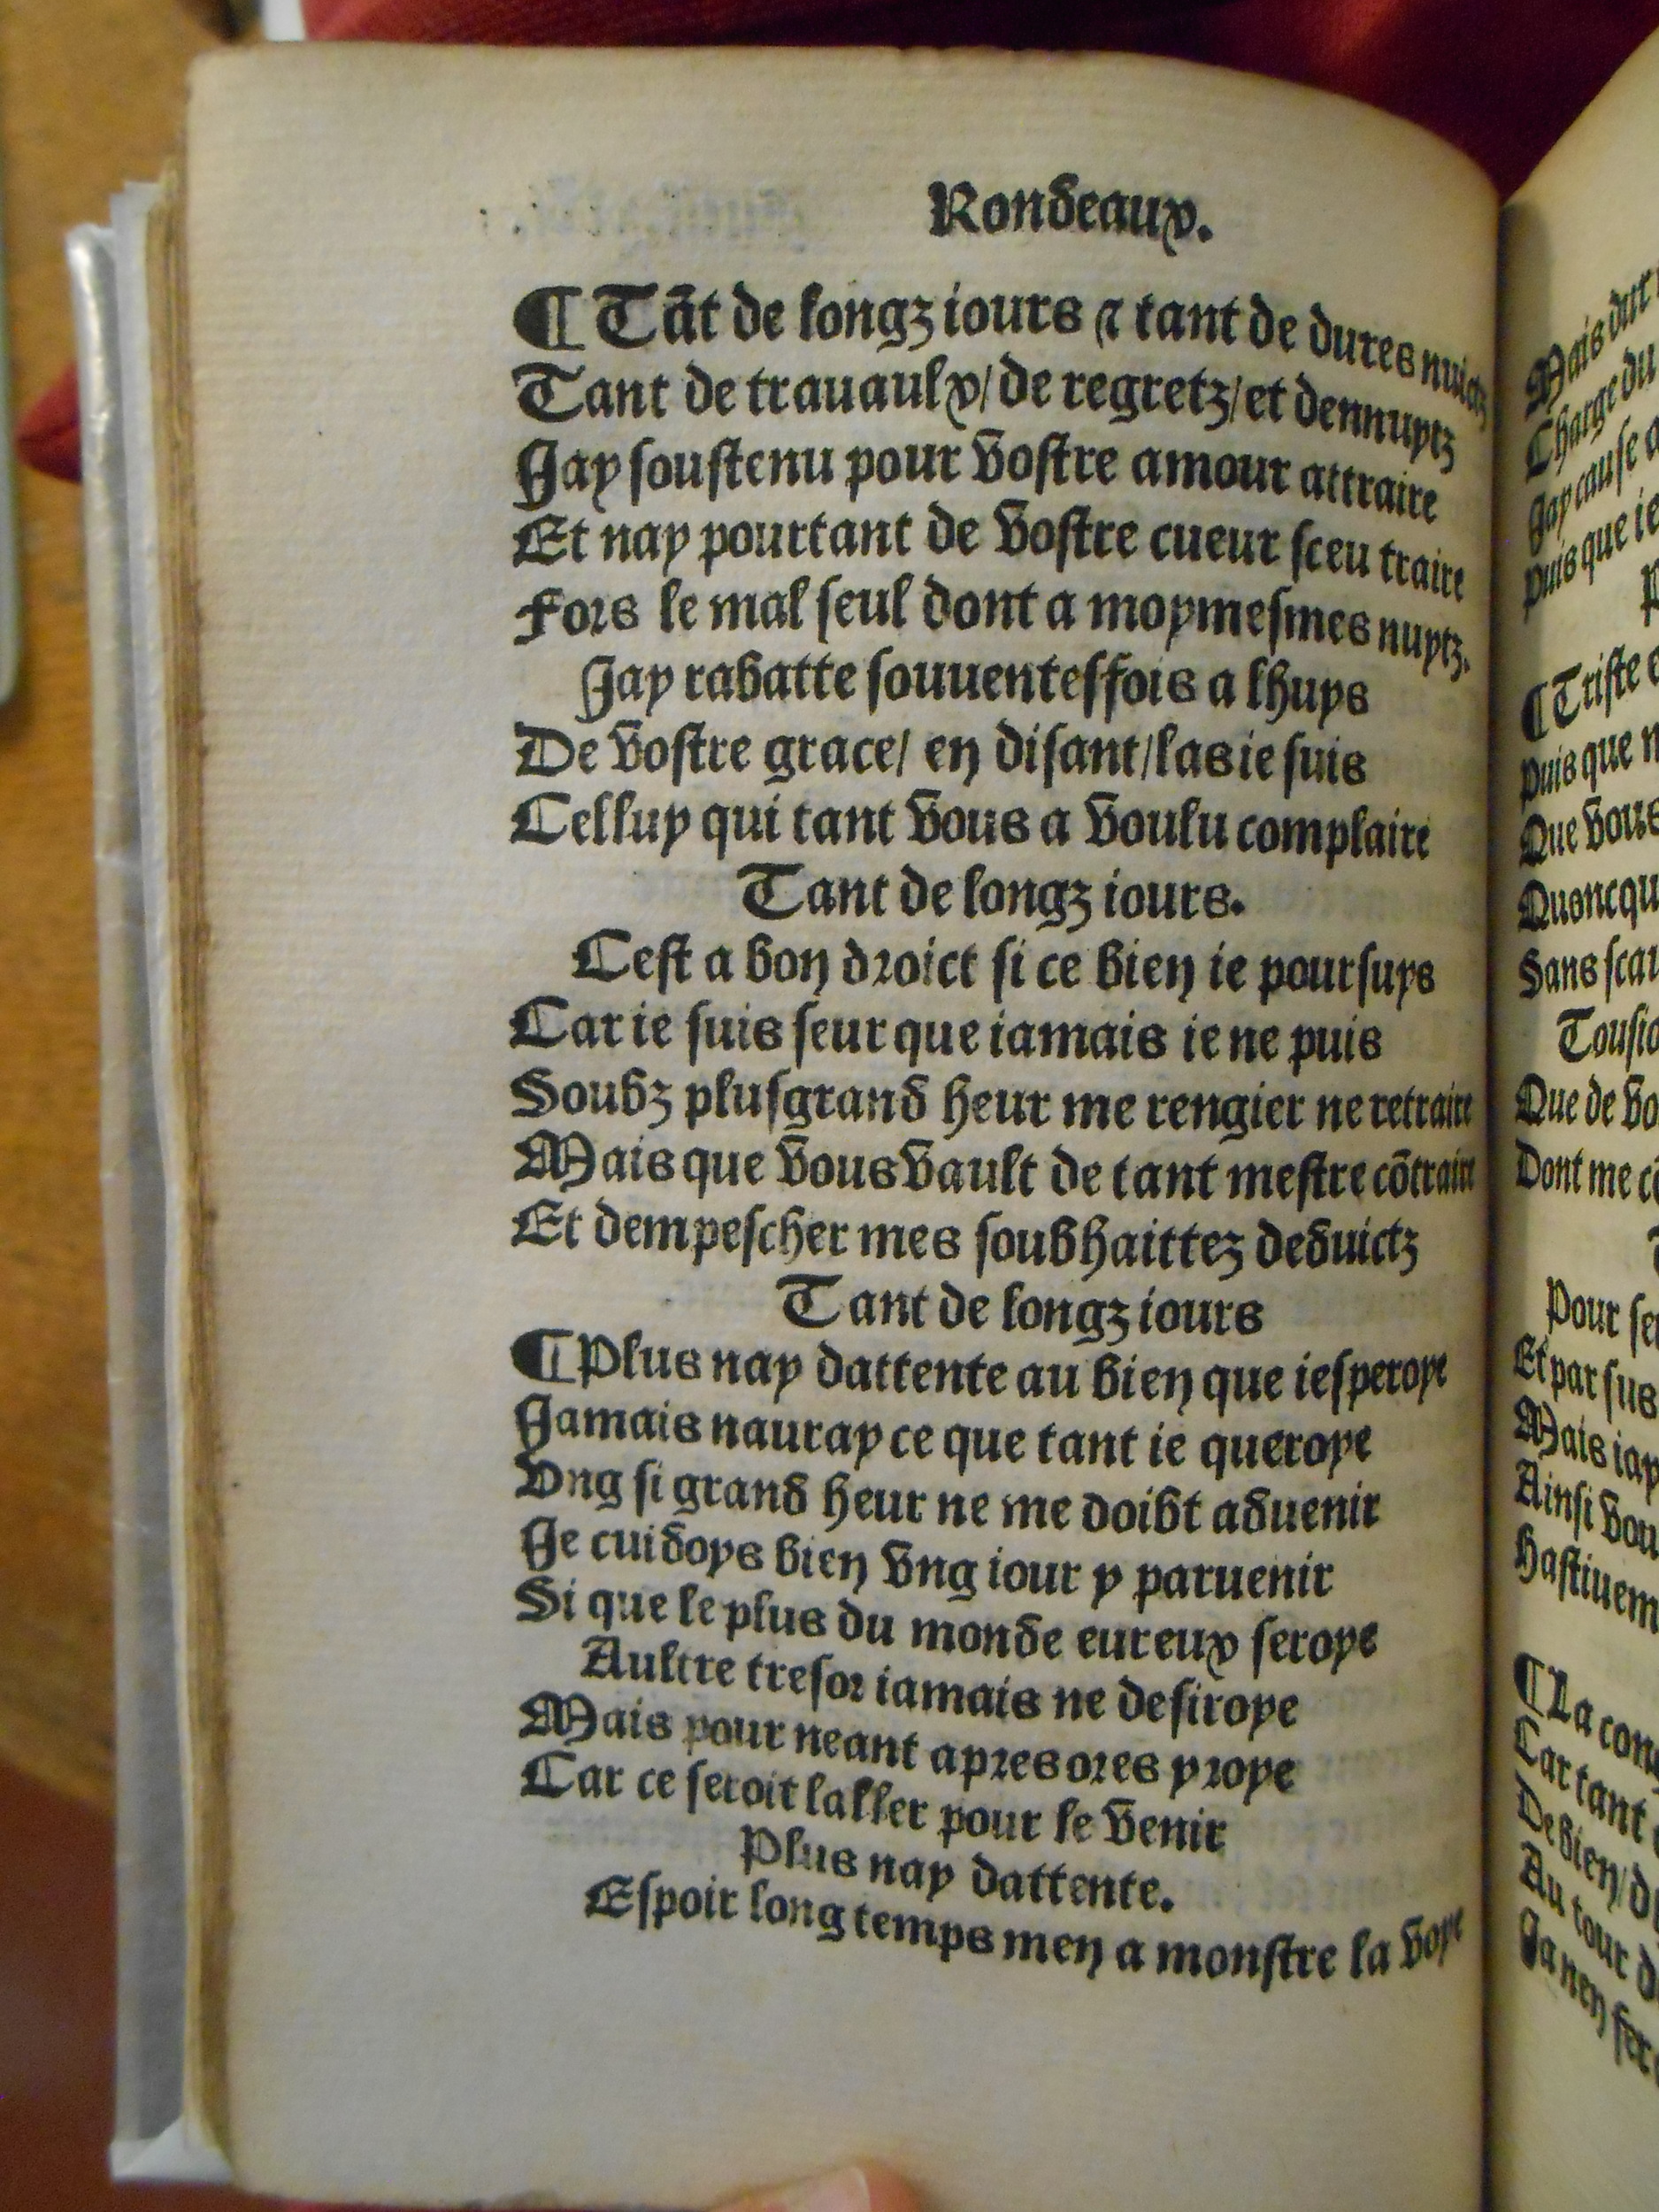 Rondeaux.
¶ Tāt de longz iours ⁊ tant de dures nuictz
Tant de trauaulx/ de regretz/ et dennuytz
Jay soustenu pour vostre amour attraire
Et nay pourtant de vostre cueur sceu traire
Fors le mal seul dont a moymesmes nuytz.
Jay rabatte souuentesfois a lhuys
De vostre grace/ en disant/ las ie suis
Celluy qui tant vous a voulu complaire
Tant de longz iours.
Cest a bon droict si ce bien ie poursuys
Car ie suis seur que iamais ie ne puis
Soubz plusgrand heur me rengier ne retraire
Mais que vous vault de tant mestre cōtraire
Et dempescher mes soubhaittez deduictz
Tant de longz iours
¶ Plus nay dattente au bien que iesperoye
Jamais nauray ce que tant ie queroye
Vng si grand heur ne me doibt aduenir
Je cuidoys bien vng iour y paruenir
Si que le plus du monde eureux seroye
Aultre tresor iamais ne desiroye
Mais pour neant apres ores yroye
Car ce seroit laller pour le venir
Plus nay dattente.
Espoir long temps men a monstre la voye
Mais
Charge du
Jay cause
Puis que ie
¶ Triste
Puis que
Que vous
Quoncqu
Sans scau
Tousio
Que de vo
Dont me
Pour
Et par sus
Mais iay
Ainsi vou
Hastiuem
¶ La cong
Car tant
De bien/
Au tour
Ja nen